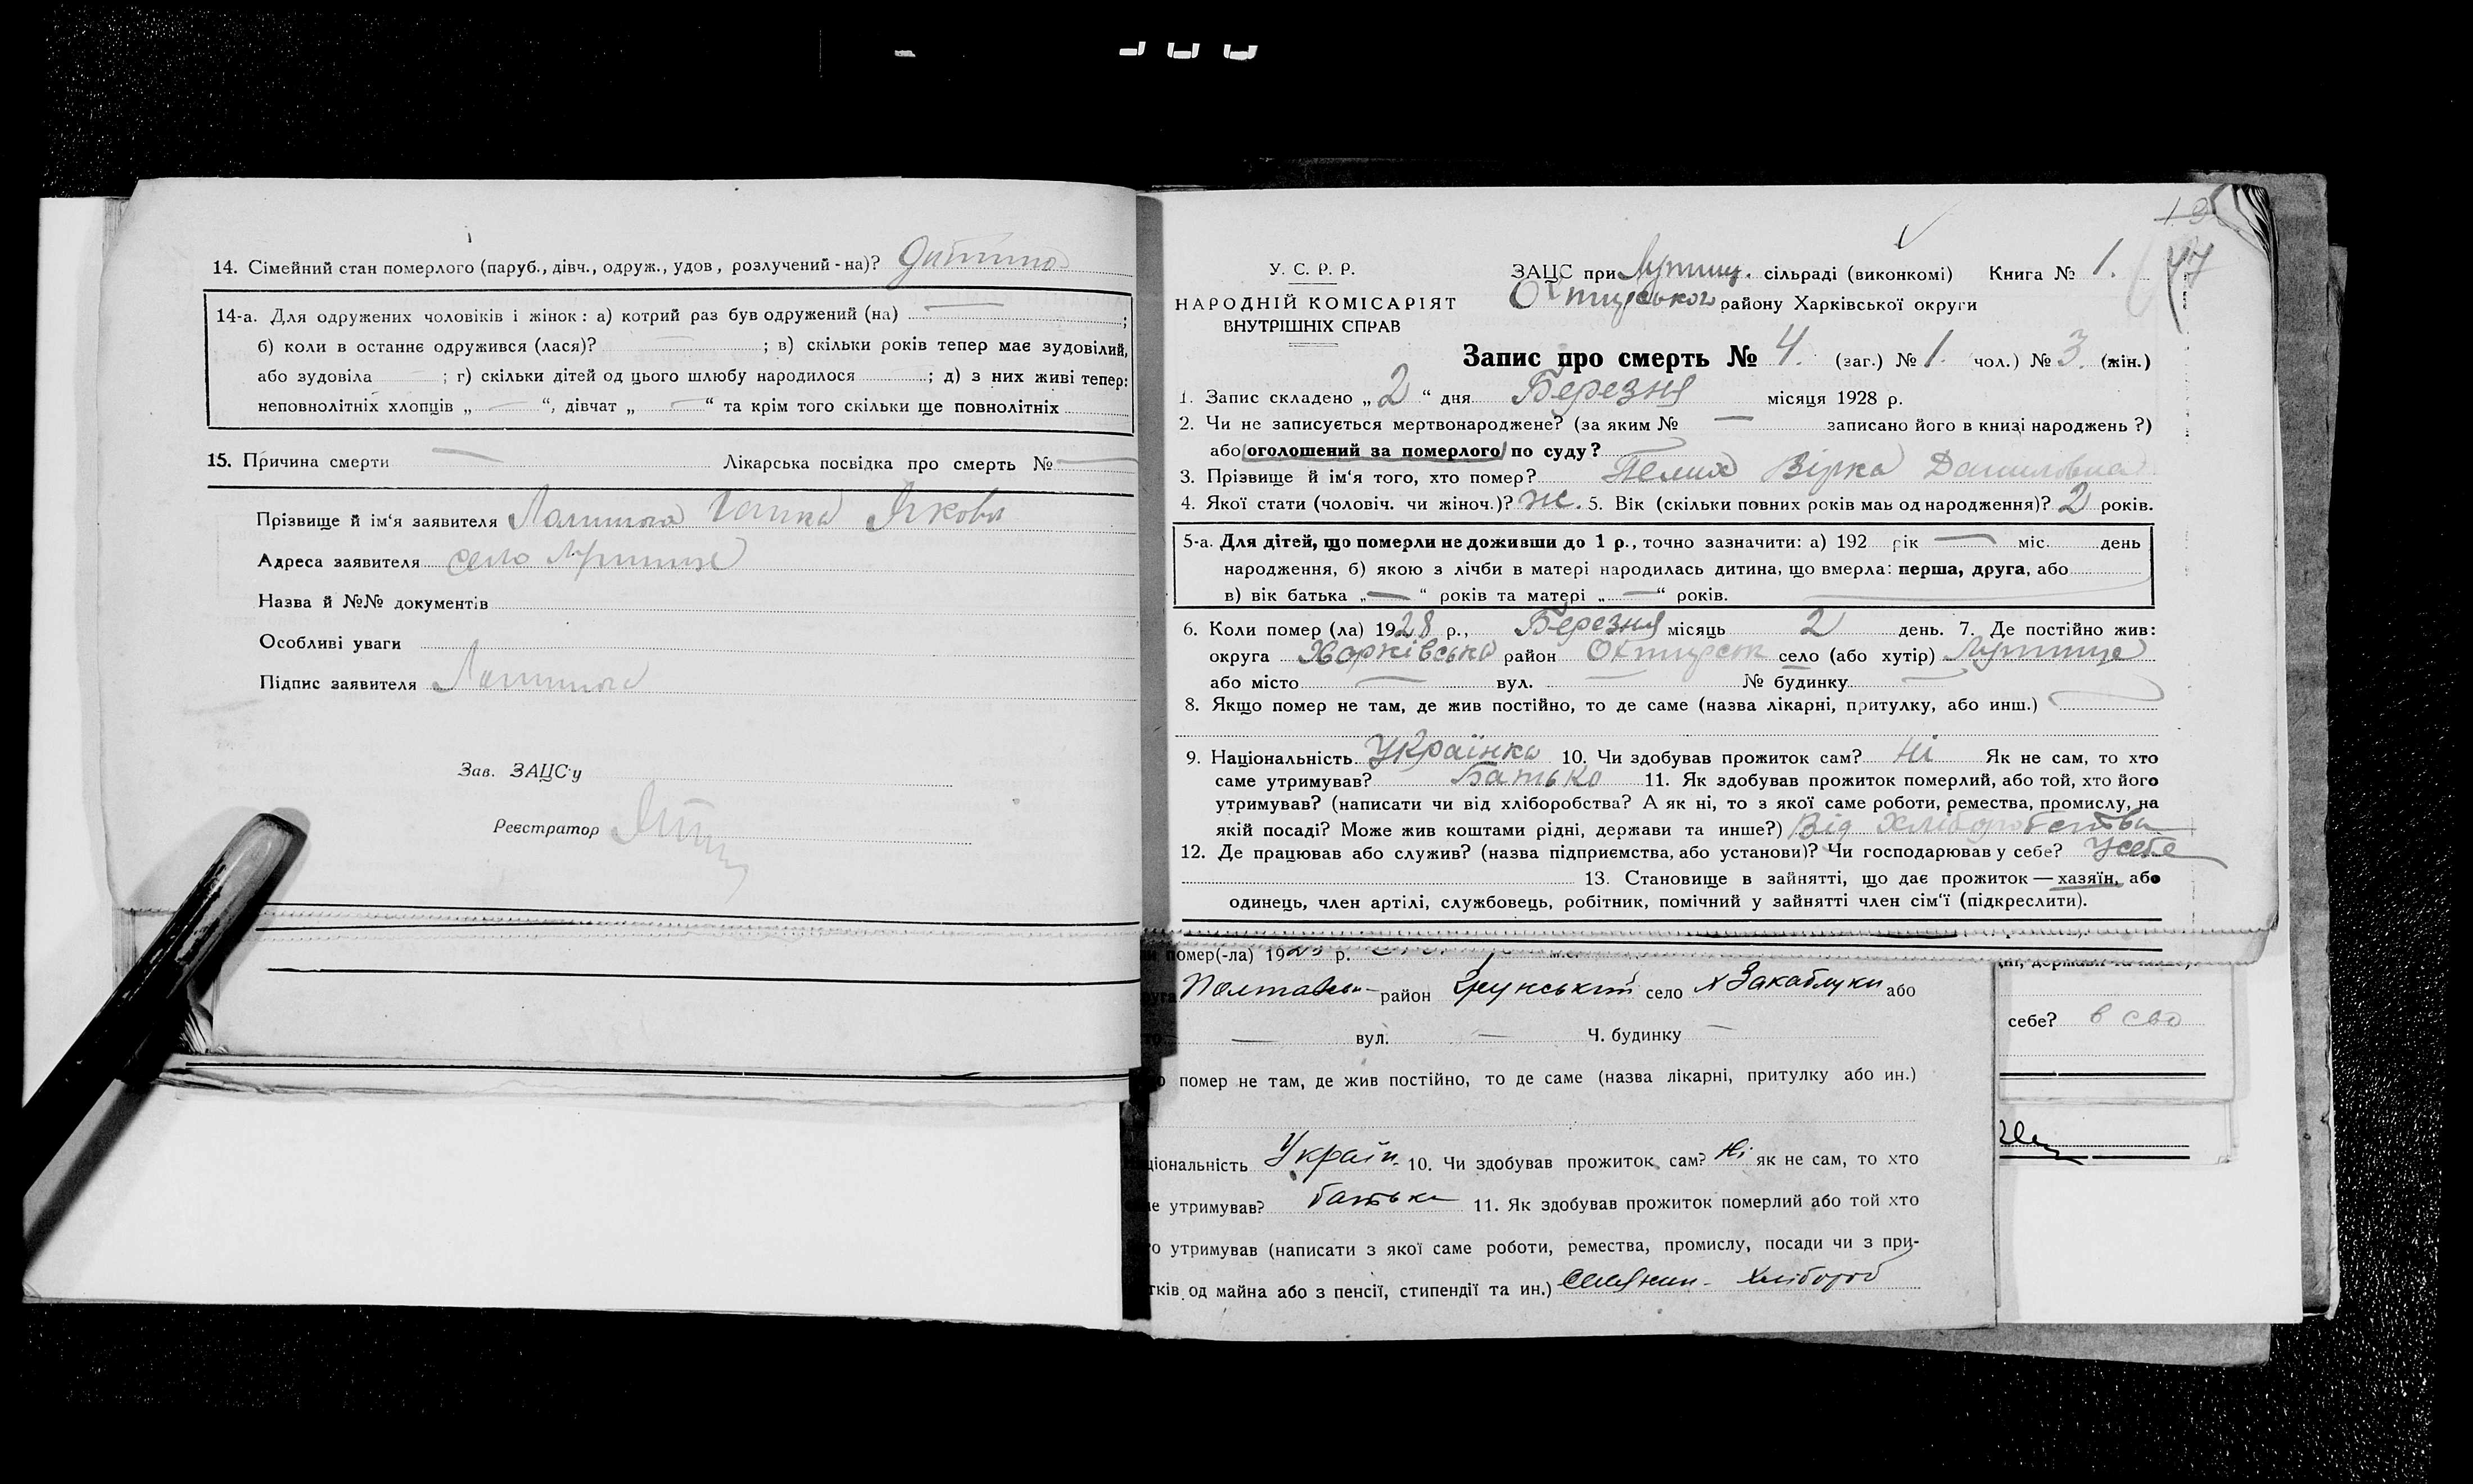 14. Сімейний стан померлого (паруб., дівч., одруж., удов, розлучений-на)? Дитина
14-а. Для одружених чоловіків і жінок: а) котрий раз був одружений (на) — ;
б) коли в останнє одружився (лася)? — ; в) скільки років тепер має зудовілий,
або зудовіла — ; г) скільки дітей од цього шлюбу народилося ; д) з них живі тепер:
неповнолітніх хлопців „ — “, дівчат „ — “ та крім того скільки ще повнолітніх
15. Причина смерти — Лікарська посвідка про смерть № —
Прізвище й ім'я заявителя Ганна Яковл
Адреса заявителя село
Назва й №№ документів
Особливі уваги
Підпис заявителя
Зав. ЗАЦС'у
Реєстратор
13
47
У. С. Р. Р.
НАРОДНІЙ КОМІСАРІЯТ
ВНУТРІШНІХ СПРАВ
ЗАЦС при сільраді (виконкомі) Книга № 1.
Охтирського району Харківської округи
Запис про смерть № 4. (заг.) № 1. чол.) № 3. (жін.)
1. Запис складено „ 2 “ дня Березня місяця 1928 р.
2. Чи не записується мертвонароджене? (за яким № — записано його в книзі народжень ?)
або оголошений за померлого по суду?
3. Прізвище й ім'я того, хто помер? Пелих Вірка Даниловна
4. Якої стати (чоловіч. чи жіноч.)? Ж. 5. Вік (скільки повних років мав од народження)? 2 років.
5-а. Для дітей, що померли не доживши до 1 р., точно зазначити: а) 192 рік — міс. день
народження, б) якою з лічби в матері народилась дитина, що вмерла: перша, друга, або
в) вік батька „ — “ років та матері „ — “ років.
6. Коли помер (ла) 1928 р., Березня місяць 2 день. 7. Де постійно жив:
округа Харківська район Охтирськ село (або хутір)
або місто — вул. — № будинку —
8. Якщо помер не там, де жив постійно, то де саме (назва лікарні, притулку, або инш.)
9. Національність Українка 10. Чи здобував прожиток сам? Ні Як не сам, то хто
саме утримував? Батько 11. Як здобував прожиток померлий, або той, хто його
утримував? (написати чи від хліборобства? А як ні, то з якої саме роботи, ремества, промислу, на
якій посаді? Може жив коштами рідні, держави та инше?) Від Хліборобства
12. Де працював або служив? (назва підприємства, або установи)? Чи господарював у себе? У себе
13. Становище в зайнятті, що дає прожиток — хазяїн, або
одинець, член артілі, службовець, робітник, помічний у зайнятті член сім'ї (підкреслити).
помер(-ла) 192 р.
район Грунський село х Закаблуки або
— вул. — Ч. будинку —
помер не там, де жив постійно, то де саме (назва лікарні, притулку або ин.)
ціональність Україн 10. Чи здобував прожиток сам? Ні як не сам, то хто
утримував? батько 11. Як здобував прожиток померлий або той хто
утримував (написати з якої саме роботи, ремества, промислу, посади чи з при-
тків од майна або з пенсії, стипендії та ин.) Селянин - хлібороб
себе? в сво